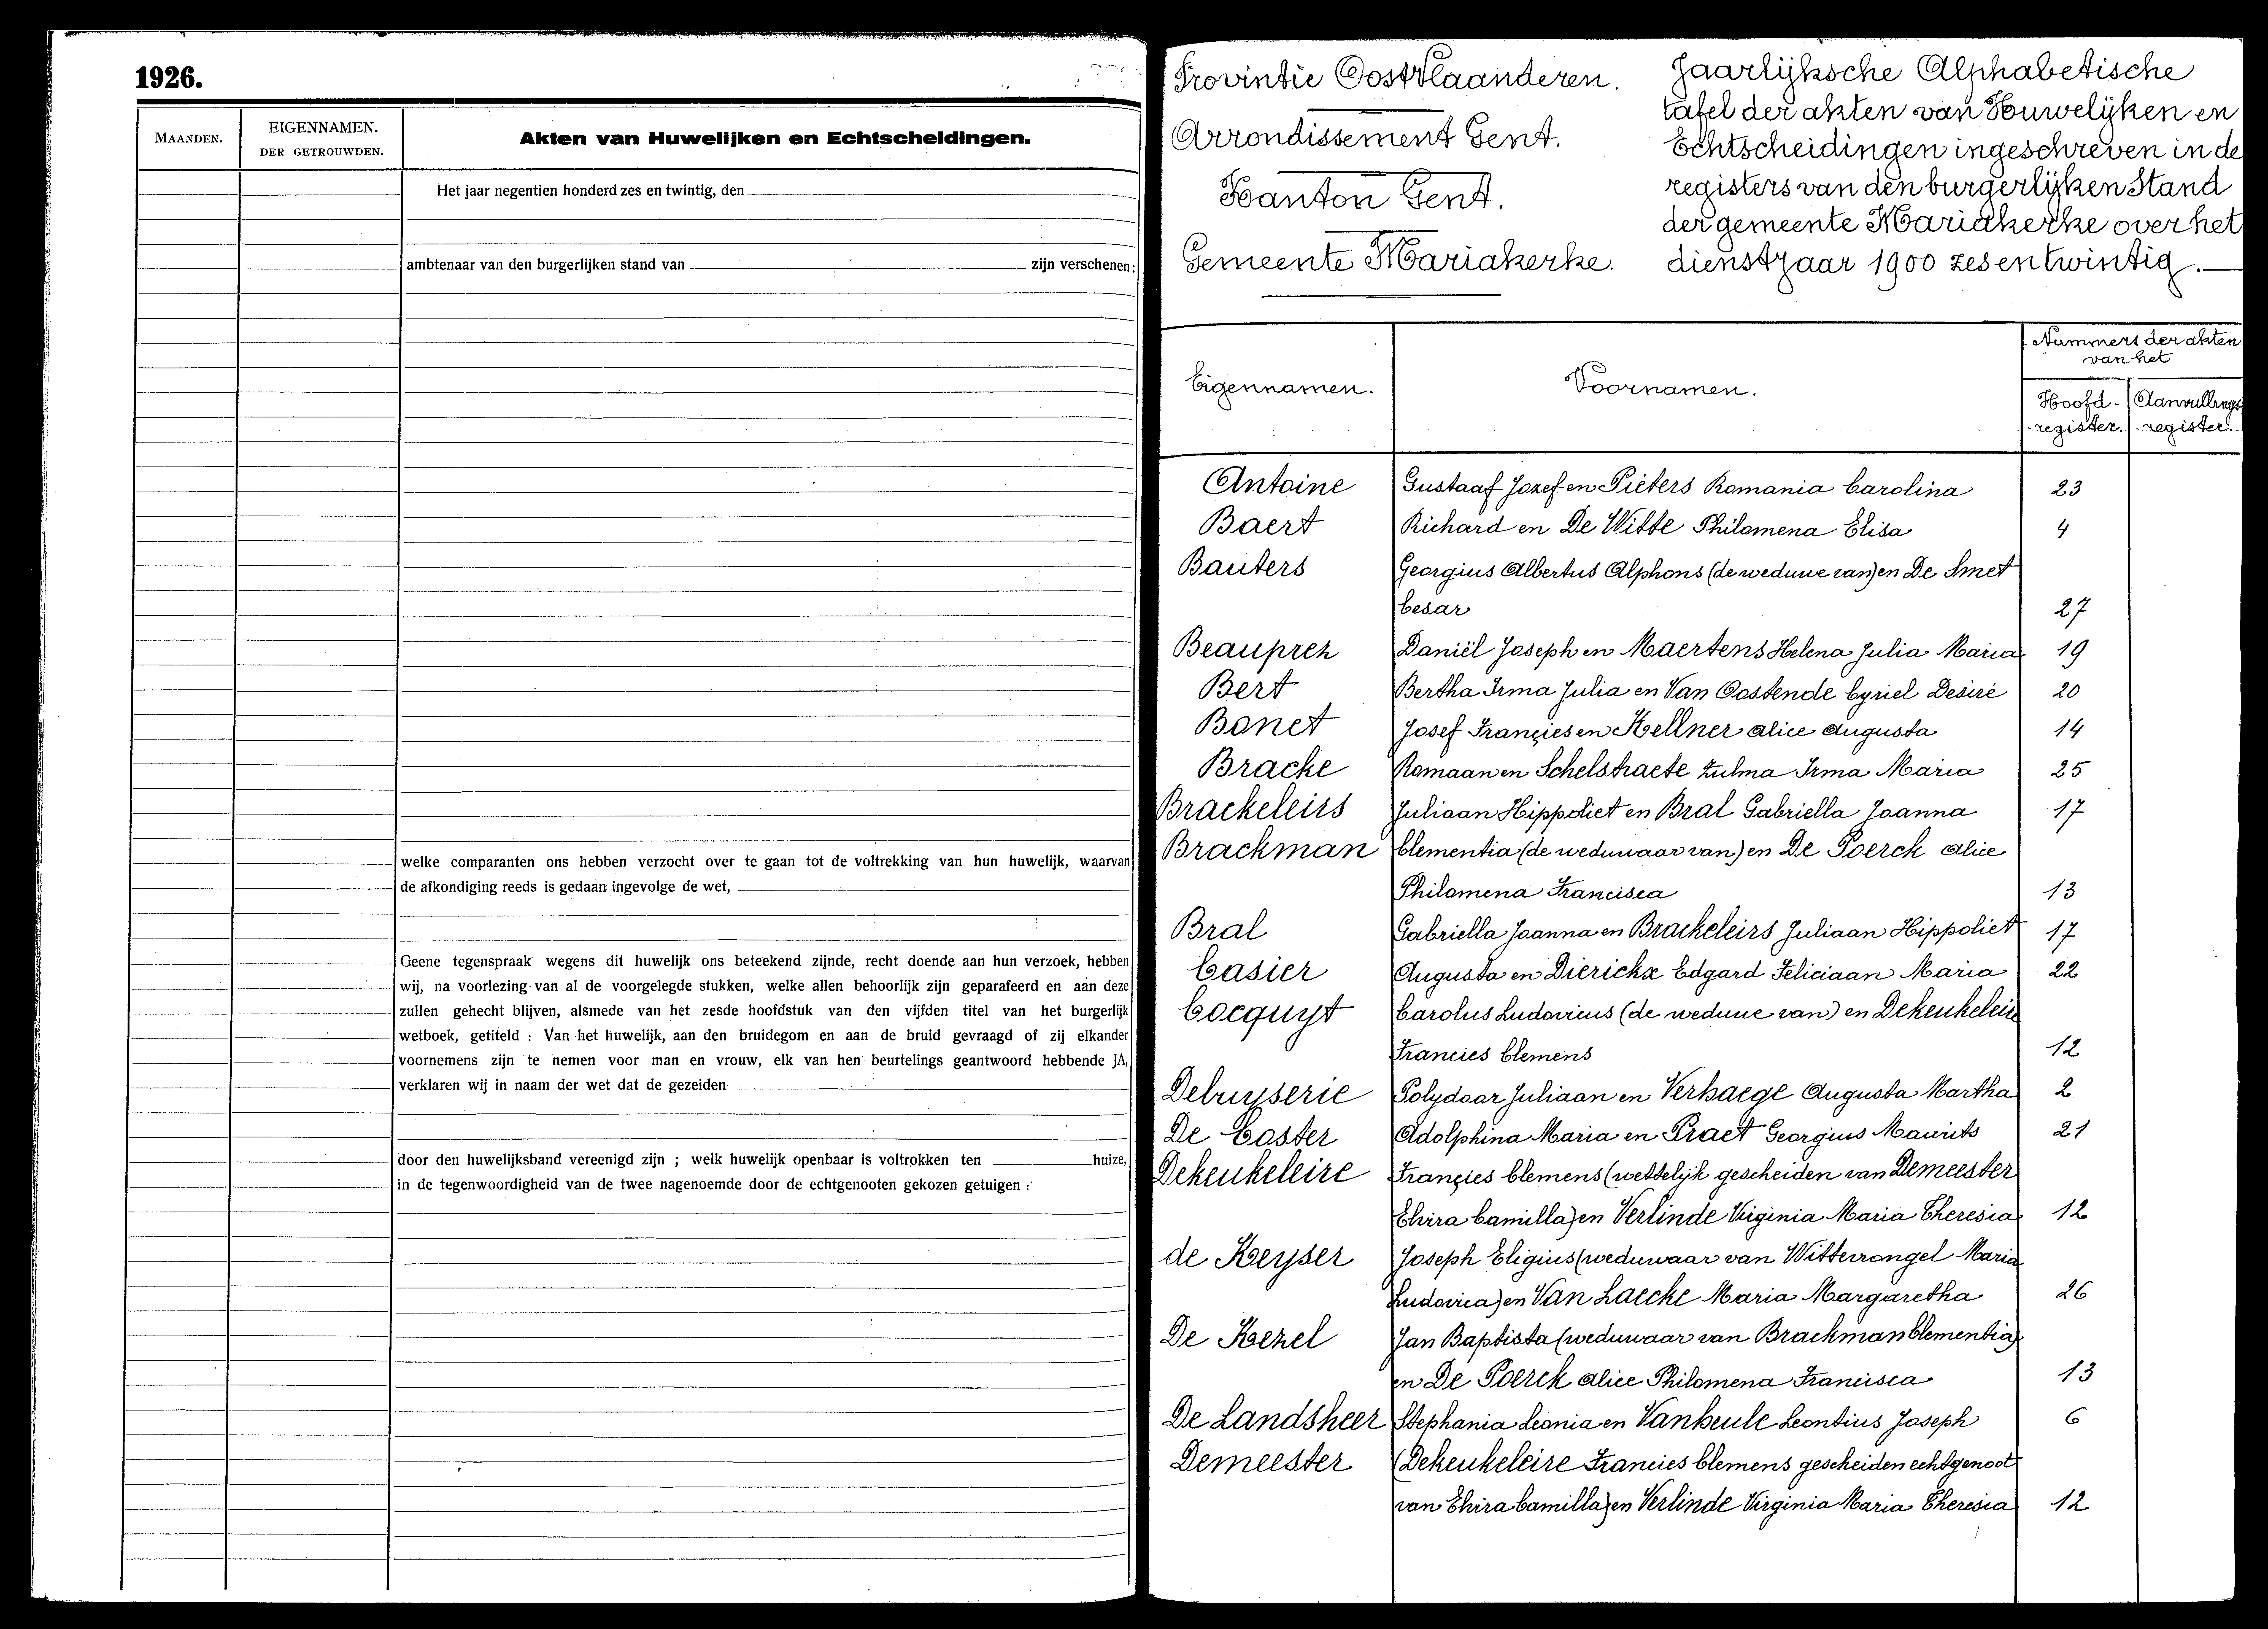 1926.
MAANDEN.
EIGENNAMEN.
DER GETROUWDEN.
Akten van Huwelijken en Echtscheidingen.
Het jaar negentien honderd zes en twintig, den
ambtenaar van den burgerlijken stand van zijn verschenen:
welke comparanten ons hebben verzocht over te gaan tot de voltrekking van hun huwelijk, waarvan
de afkondiging reeds is gedaan ingevolge de wet,
Geene tegenspraak wegens dit huwelijk ons beteekend zijnde, recht doende aan hun verzoek, hebben
wij, na voorlezing van al de voorgelegde stukken, welke allen behoorlijk zijn geparafeerd en aan deze
zullen gehecht blijven, alsmede van het zesde hoofdstuk van den vijfden titel van het burgerlijk
wetboek, getiteld : Van het huwelijk, aan den bruidegom en aan de bruid gevraagd of zij elkander
voornemens zijn te nemen voor man en vrouw, elk van hen beurtelings geantwoord hebbende JA,
verklaren wij in naam der wet dat de gezeiden
door den huwelijksband vereenigd zijn ; welk huwelijk openbaar is voltrokken ten huize,
in de tegenwoordigheid van de twee nagenoemde door de echtgenooten gekozen getuigen :
Provintie OostVlaanderen.
Arrondissement Gent.
Kanton Gent.
Gemeente Mariakerke.
Jaarlijksche Alphabetische
tafel der akten van Huwelijken en
Echtscheidingen ingeschreven in de
registers van den burgerlijken Stand
der gemeente Mariakerke over het
dienstjaar 1900 zesentwintig.
Eigennamen.
Voornamen.
Nummers der akten
van het
Hoofd-
register.
Aanvullings
register.
Antoine Gustaaf Jozef en Pieters Romania Carolina 23
Baert Richard en De Witte Philomena Elisa 4
Bauters Georgius Albertus Alphons (de weduwe van) en De Smet
Cesar 27
Beauprez Daniël Joseph en Maertens Helena Julia Maria 19
Bert Bertha Irma Julia en Van Oostende Cyriel Desiré 20
Bonet Josef Françies en Kellner Alice Augusta 14
Bracke Romaan en Schelstraete Zulma Irma Maria 25
Brackeleirs Juliaan Hippoliet en Bral Gabriella Joanna 17
Brackman Clementia (de weduwaar van) en De Poerck Alice
Philomena Francisca 13
Bral Gabriella Joanna en Brackeleirs Juliaan Hippoliet 17
Casier Augusta en Dierickx Edgard Feliciaan Maria 22
Cocquyt Carolus Ludovicus (de weduwe van) en Dekeukeleire
Francies Clemens 12
Debuyserie Polydoor Juliaan en Verhaege Augusta Martha 2
De Coster Adolphina Maria en Praet Georgius Maurits 21
Dekeukeleire Françies Clemens (wettelijk gescheiden van Demeester
Elvira Camilla) en Verlinde Virginia Maria Theresia 12
de Keyser Joseph Eligius (weduwaar van Witterrongel Maria
Ludovica) en Van Laecke Maria Margaretha 26
De Kezel Jan Baptista (weduwaar van Brackman Clementia)
en De Poerck Alice Philomena Francisca 13
De Landsheer Stephania Leonia en Vanheule Leontius Joseph 6
Demeester (Dekeukeleire Francies Clemens gescheiden echtgenoot
van Elvira Camilla) en Verlinde Virginia Maria Theresia 12